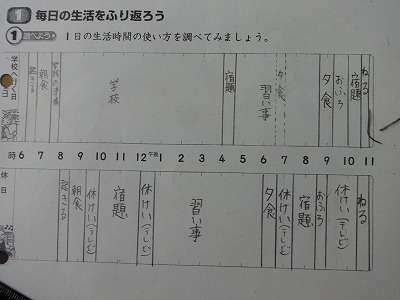 1 毎日の生活をふり返ろう
1 調べよう 1日の生活時間の使い方を調べてみましょう。
学校へ行く日
起きる
朝食
学校
宿題
習い事
夕食
夕食
おふろ
宿題
ねる
時 6 7 8 9 10 11 12 午後 1 2 3 4 5 6 7 8 9 10 11
休日
起きる
朝食
休けい(テレビ)
宿題
休けい(テレビ)
習い事
夕食
休けい(テレビ)
宿題
おふろ
休けい(テレビ)
ねる